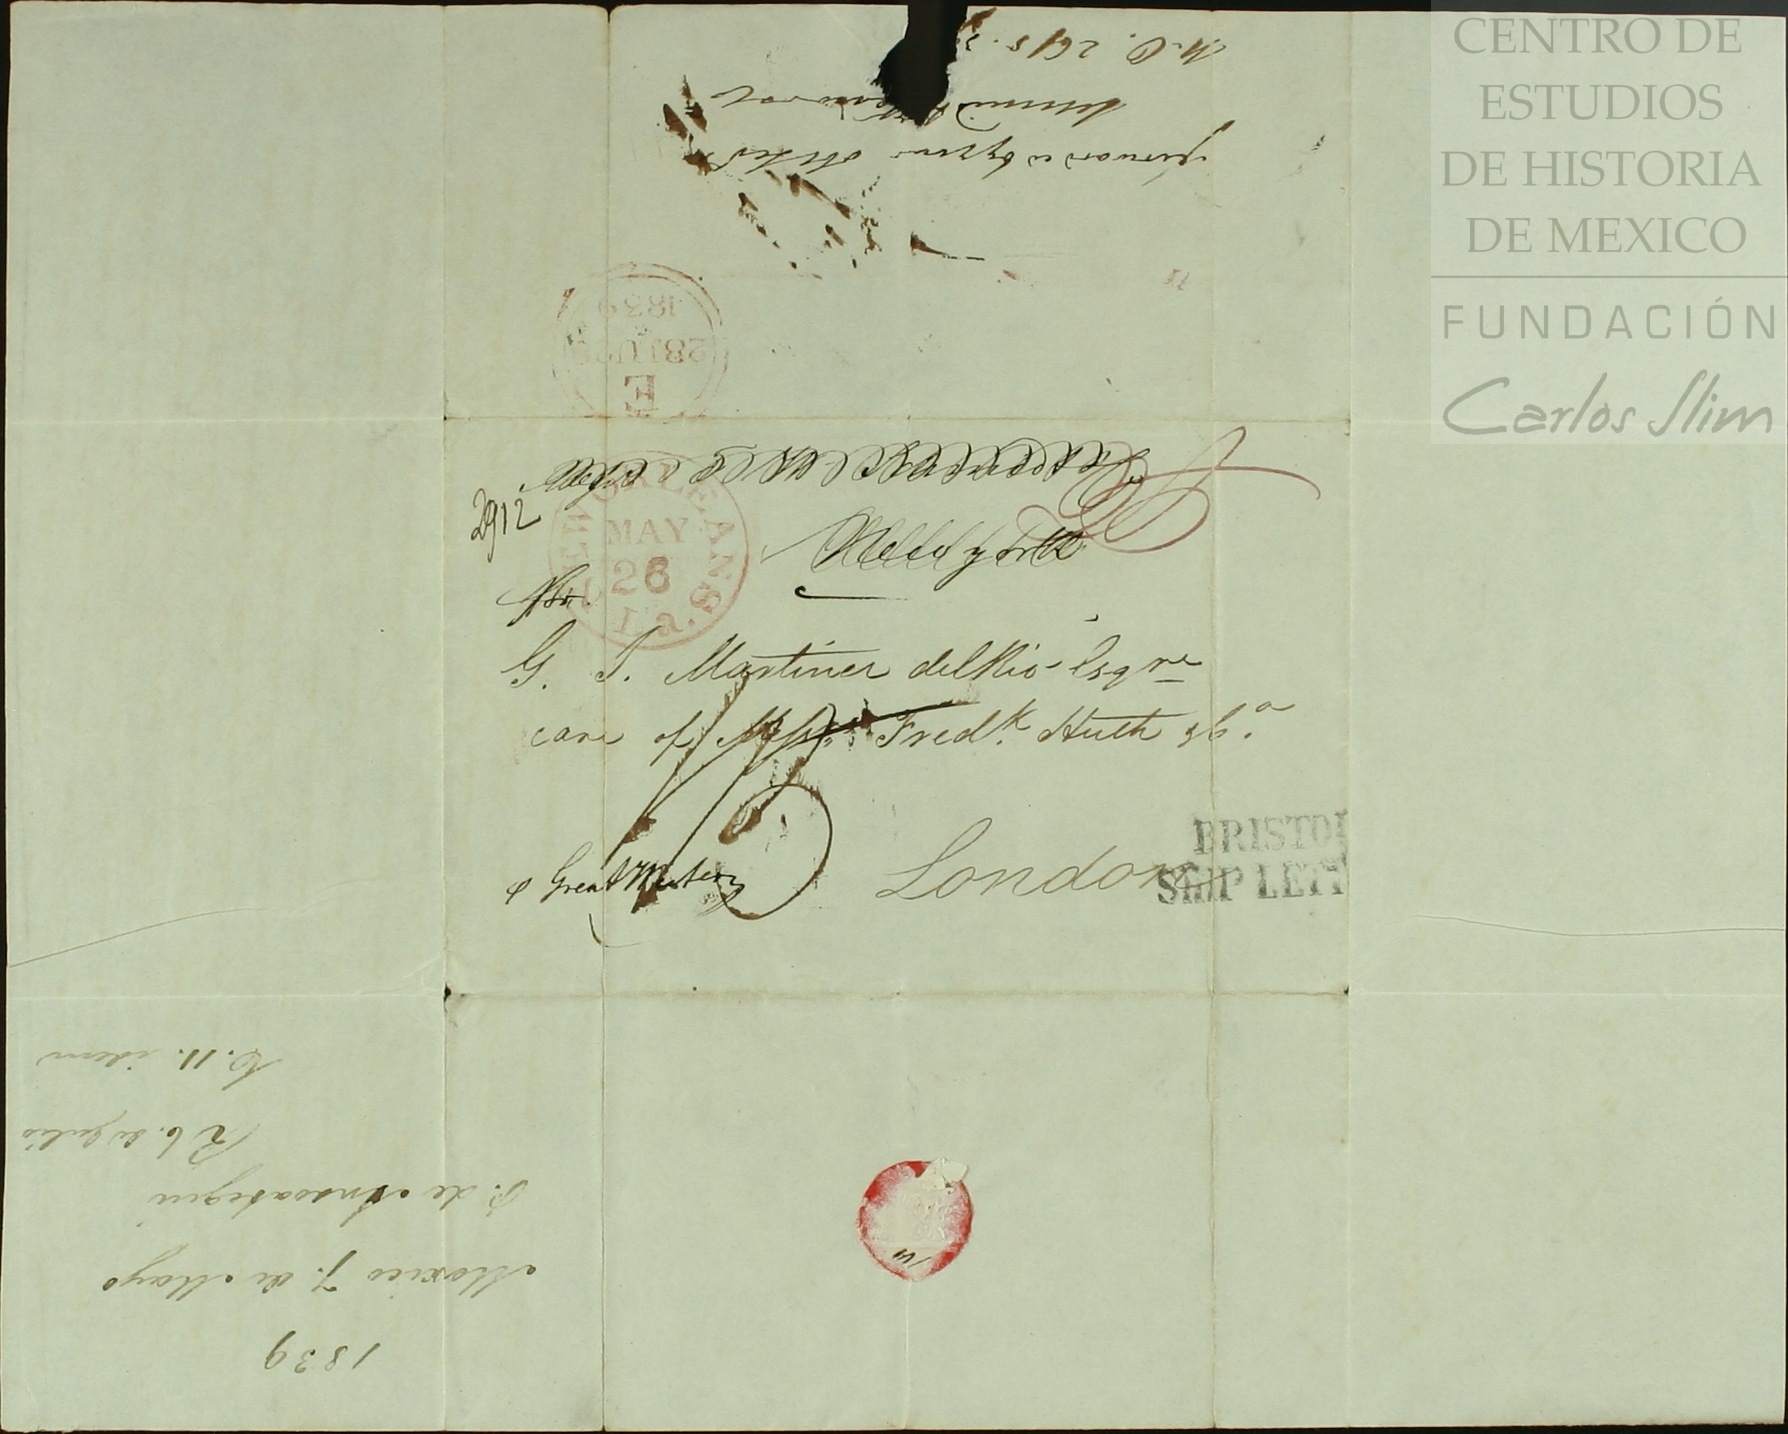 CENTRO DE
ESTUDIOS
DE HISTORIA
DE MEXICO
FUNDACIÓN
Carlos Slim
forwarded by your obt Sert
E
28 JU 28
1839
2912
NEW ORLEANS La.
MAY
26
New York
G. S. Martinez del Rio Esqre
care of Messrs Fredk Huth & Co.
p Great Western
London
BRISTOL
SHIP LETT
1839
Mexico 7. de Mayo
P. de Ansoategui
R 6. de Julio
C. 11. idem